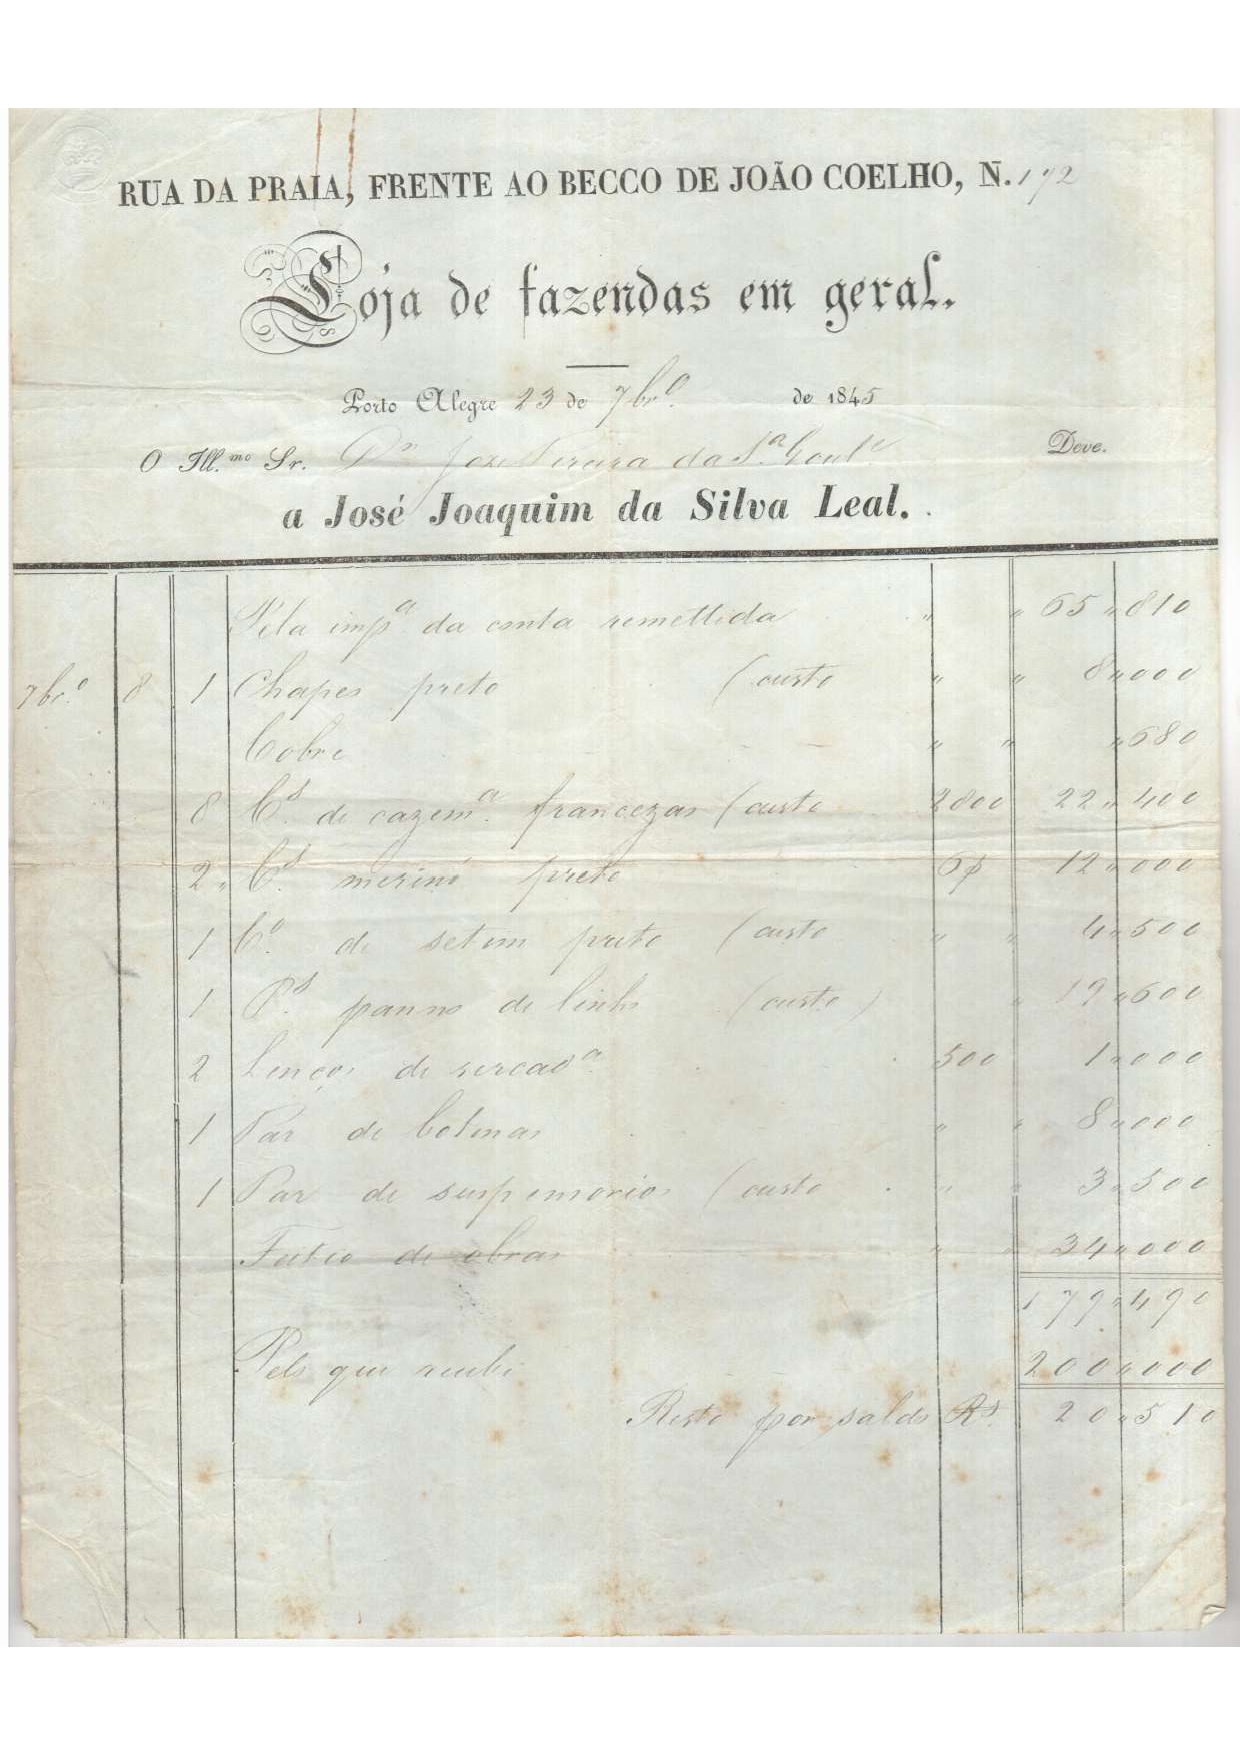 RUA DA PRAIA, FRENTE AO BECCO DE JOÃO COELHO, N. 172
Loja de fazendas em geral.
Porto Alegre 23 de 7br.º de 1845
O Ill.mo Sr. Dr. Joze Pereira da S.ª Goul.e Deve.
a José Joaquim da Silva Leal.
Pela imp.ª da conta remettida " " 65 " 810
7br.º 8 1 Chapeo preto (custo " " 8 " 000
Cobre " " " 680
8 C.s de cazem.ª francezas (custo 2800 22 " 400
2 " C.s merinó preto 6$ 12 " 000
1 C.º de setim preto (custo " " 4 " 500
1 P.s panno de linho (custo) " 19 " 600
2 Lenços de 500 1 " 000
1 Par de botinas " " 8 " 000
1 Par de suspensorios (custo " " 3 " 500
Feitio de obras " " 34 " 000
179 " 490
Pelo que recebi 200 " 000
Resto por saldo Rs. 20 " 510